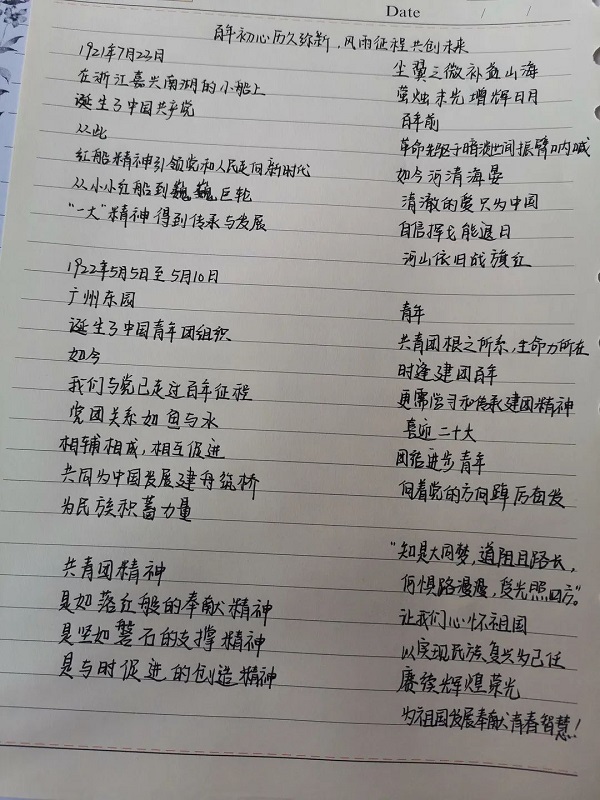 Date / /
百年初心历久弥新，风雨征程共创未来
1921年7月23日
在浙江嘉兴南湖的小船上
诞生了中国共产党
从此
红船精神引领党和人民走向新时代
从小小红船到巍巍巨轮
"一大"精神得到传承与发展
1922年5月5日至5月10日
广州东园
诞生了中国青年团组织
如今
我们与党已走过百年征程
党团关系如鱼与水
相辅相成，相互促进
共同为中国发展建舟筑桥
为民族积蓄力量
共青团精神
是如落红般的奉献精神
是坚如磐石的支撑精神
是与时促进的创造精神
尘翼之微补益山海
萤烛末光增辉日月
百年前
革命先驱于暗淡世间振臂呐喊
如今河清海晏
清澈的爱只为中国
自信挥戈能退日
河山依旧战旗红
青年
共青团根之所系，生命力所在
时逢建团百年
更需学习和传承建团精神
喜迎二十大
团结进步青年
向着党的方向踔厉奋发
"知是大同梦，道阻且路长，
何惧路漫漫，荧光照四方。"
让我们心怀祖国
以实现民族复兴为己任
赓续辉煌荣光
为祖国发展奉献青春智慧！